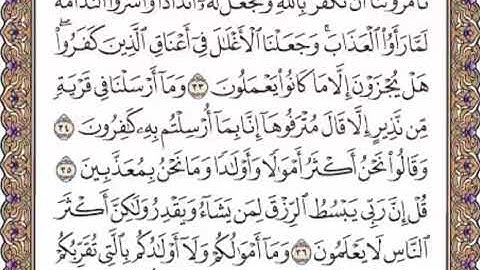 تَأْمُرُونَنَآ أَن نَّكْفُرَ بِٱللَّهِ وَنَجْعَلَ لَهُۥٓ أَندَادًا وَأَسَرُّوا۟ ٱلنَّدَامَةَ
لَمَّا رَأَوُا۟ ٱلْعَذَابَ وَجَعَلْنَا ٱلْأَغْلَٰلَ فِىٓ أَعْنَاقِ ٱلَّذِينَ كَفَرُوا۟ۖ
هَلْ يُجْزَوْنَ إِلَّا مَا كَانُوا۟ يَعْمَلُونَ ٣٣ وَمَآ أَرْسَلْنَا فِى قَرْيَةٍ
مِّن نَّذِيرٍ إِلَّا قَالَ مُتْرَفُوهَآ إِنَّا بِمَآ أُرْسِلْتُم بِهِۦ كَٰفِرُونَ ٣٤
وَقَالُوا۟ نَحْنُ أَكْثَرُ أَمْوَٰلًا وَأَوْلَٰدًا وَمَا نَحْنُ بِمُعَذَّبِينَ ٣٥
قُلْ إِنَّ رَبِّى يَبْسُطُ ٱلرِّزْقَ لِمَن يَشَآءُ وَيَقْدِرُ وَلَٰكِنَّ أَكْثَرَ
ٱلنَّاسِ لَا يَعْلَمُونَ ٣٦ وَمَآ أَمْوَٰلُكُمْ وَلَآ أَوْلَٰدُكُم بِٱلَّتِى تُقَرِّبُكُمْ